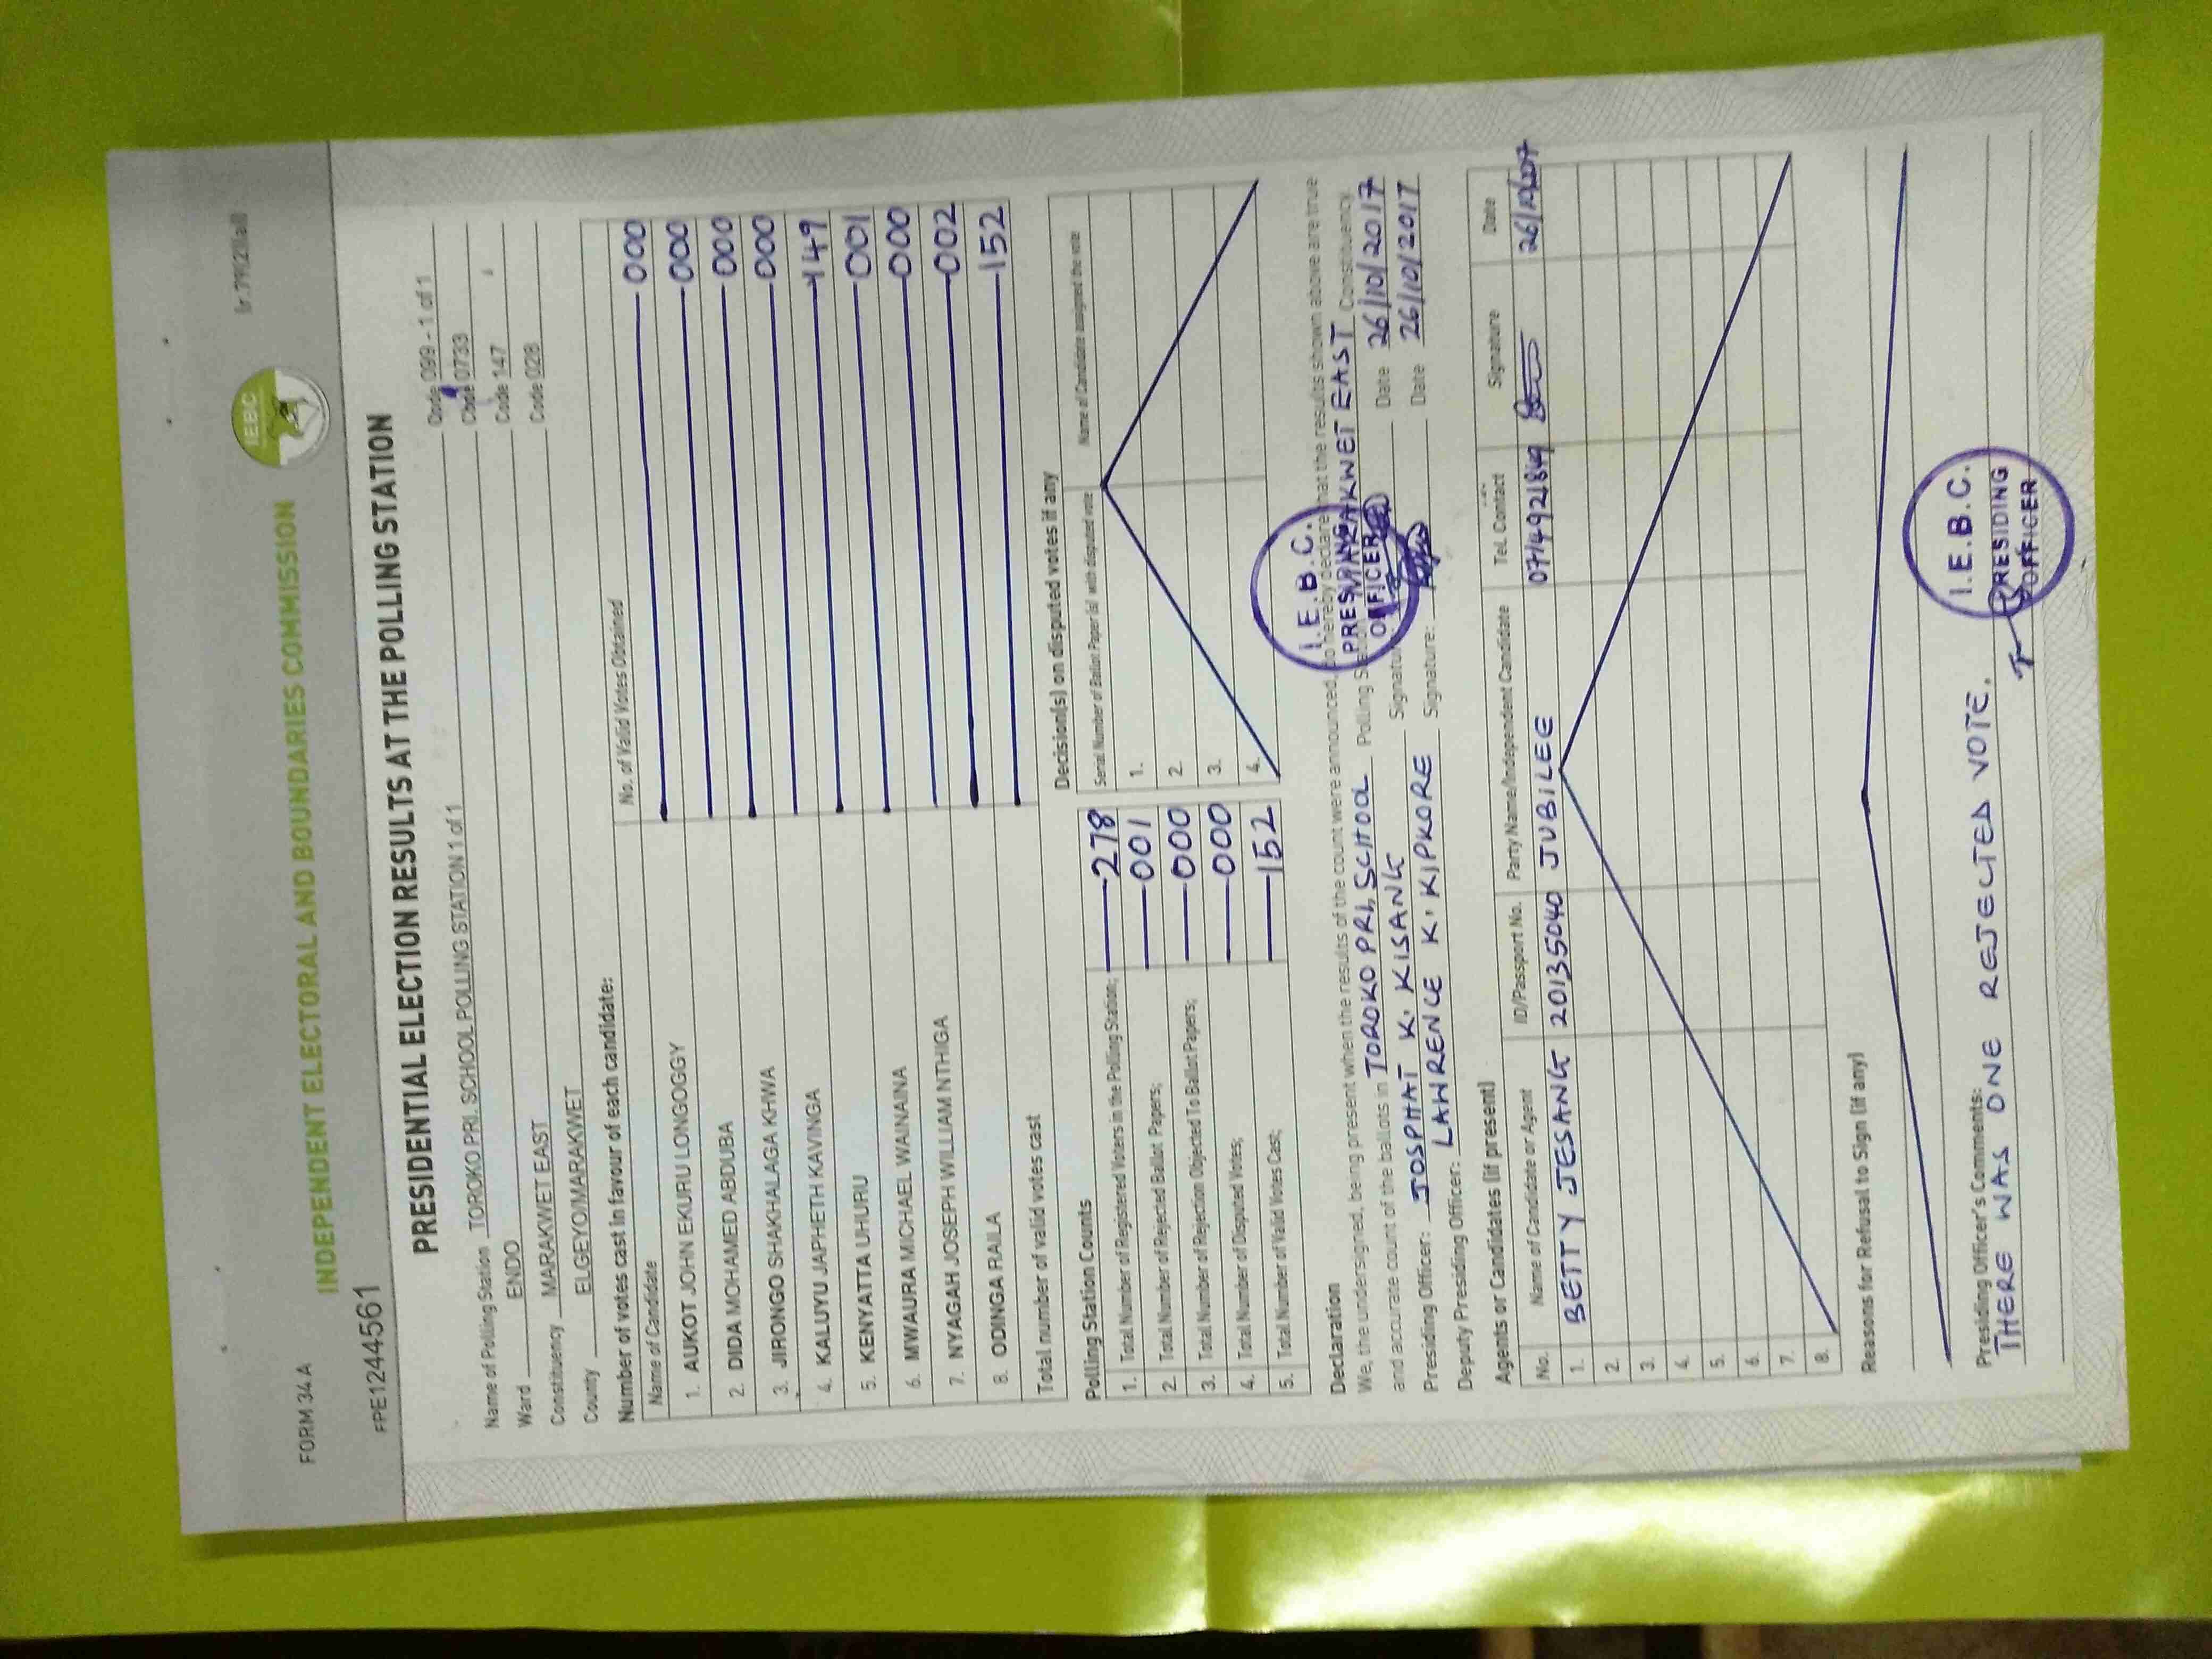 FORM 34 A
INDEPENDENT ELECTORAL AND BOUNDARIES COMMISSION
IEBC
FPE1244561
PRESIDENTIAL ELECTION RESULTS AT THE POLLING STATION
Name of Polling Station TOROKO PRI. SCHOOL POLLING STATION 1 of 1 Code 099 - 1 of 1
Ward ENDO Code 0733
Constituency MARAKWET EAST Code 147
County ELGEYO/MARAKWET Code 028
Number of votes cast in favour of each candidate:
Name of Candidate No. of Valid Votes Obtained
1. AUKOT JOHN EKURU LONGOGGY 000
2. DIDA MOHAMED ABDUBA 000
3. JIRONGO SHAKHALAGA KHWA 000
4. KALUYU JAPHETH KAVINGA 000
5. KENYATTA UHURU 149
6. MWAURA MICHAEL WAINAINA 001
7. NYAGAH JOSEPH WILLIAM NTHIGA 000
8. ODINGA RAILA 002
Total number of valid votes cast 152
Polling Station Counts
1. Total Number of Registered Voters in the Polling Station; 278
2. Total Number of Rejected Ballot Papers; 001
3. Total Number of Rejection Objected To Ballot Papers; 000
4. Total Number of Disputed Votes; 000
5. Total Number of Valid Votes Cast; 152
Decision(s) on disputed votes if any
Serial Number of Ballot Paper (s) with disputed vote Name of Candidate assigned the vote
1.
2.
3.
4.
Declaration
We, the undersigned, being present when the results of the count were announced, do hereby declare that the results shown above are true
and accurate count of the ballots in TOROKO PRI, SCHOOL Polling MARAKWET EAST Constituency
Presiding Officer: JOSPHAT K. KISANG Signature Date 26/10/2017
Deputy Presiding Officer: LAWRENCE K. KIPKORE Signature: Date 26/10/2017
I.E.B.C.
PRESIDING
OFFICER
Agents or Candidates (if present)
No. Name of Candidate or Agent ID/Passport No. Party Name/Independent Candidate Tel. Contact Signature Date
1. BETTY JESANG 20135040 JUBILEE 0714921849 26/10/2017
2.
3.
4.
5.
6.
7.
8.
Reasons for Refusal to Sign (if any)
Presiding Officer's Comments:
THERE WAS ONE REJECTED VOTE.
I.E.B.C.
PRESIDING
OFFICER